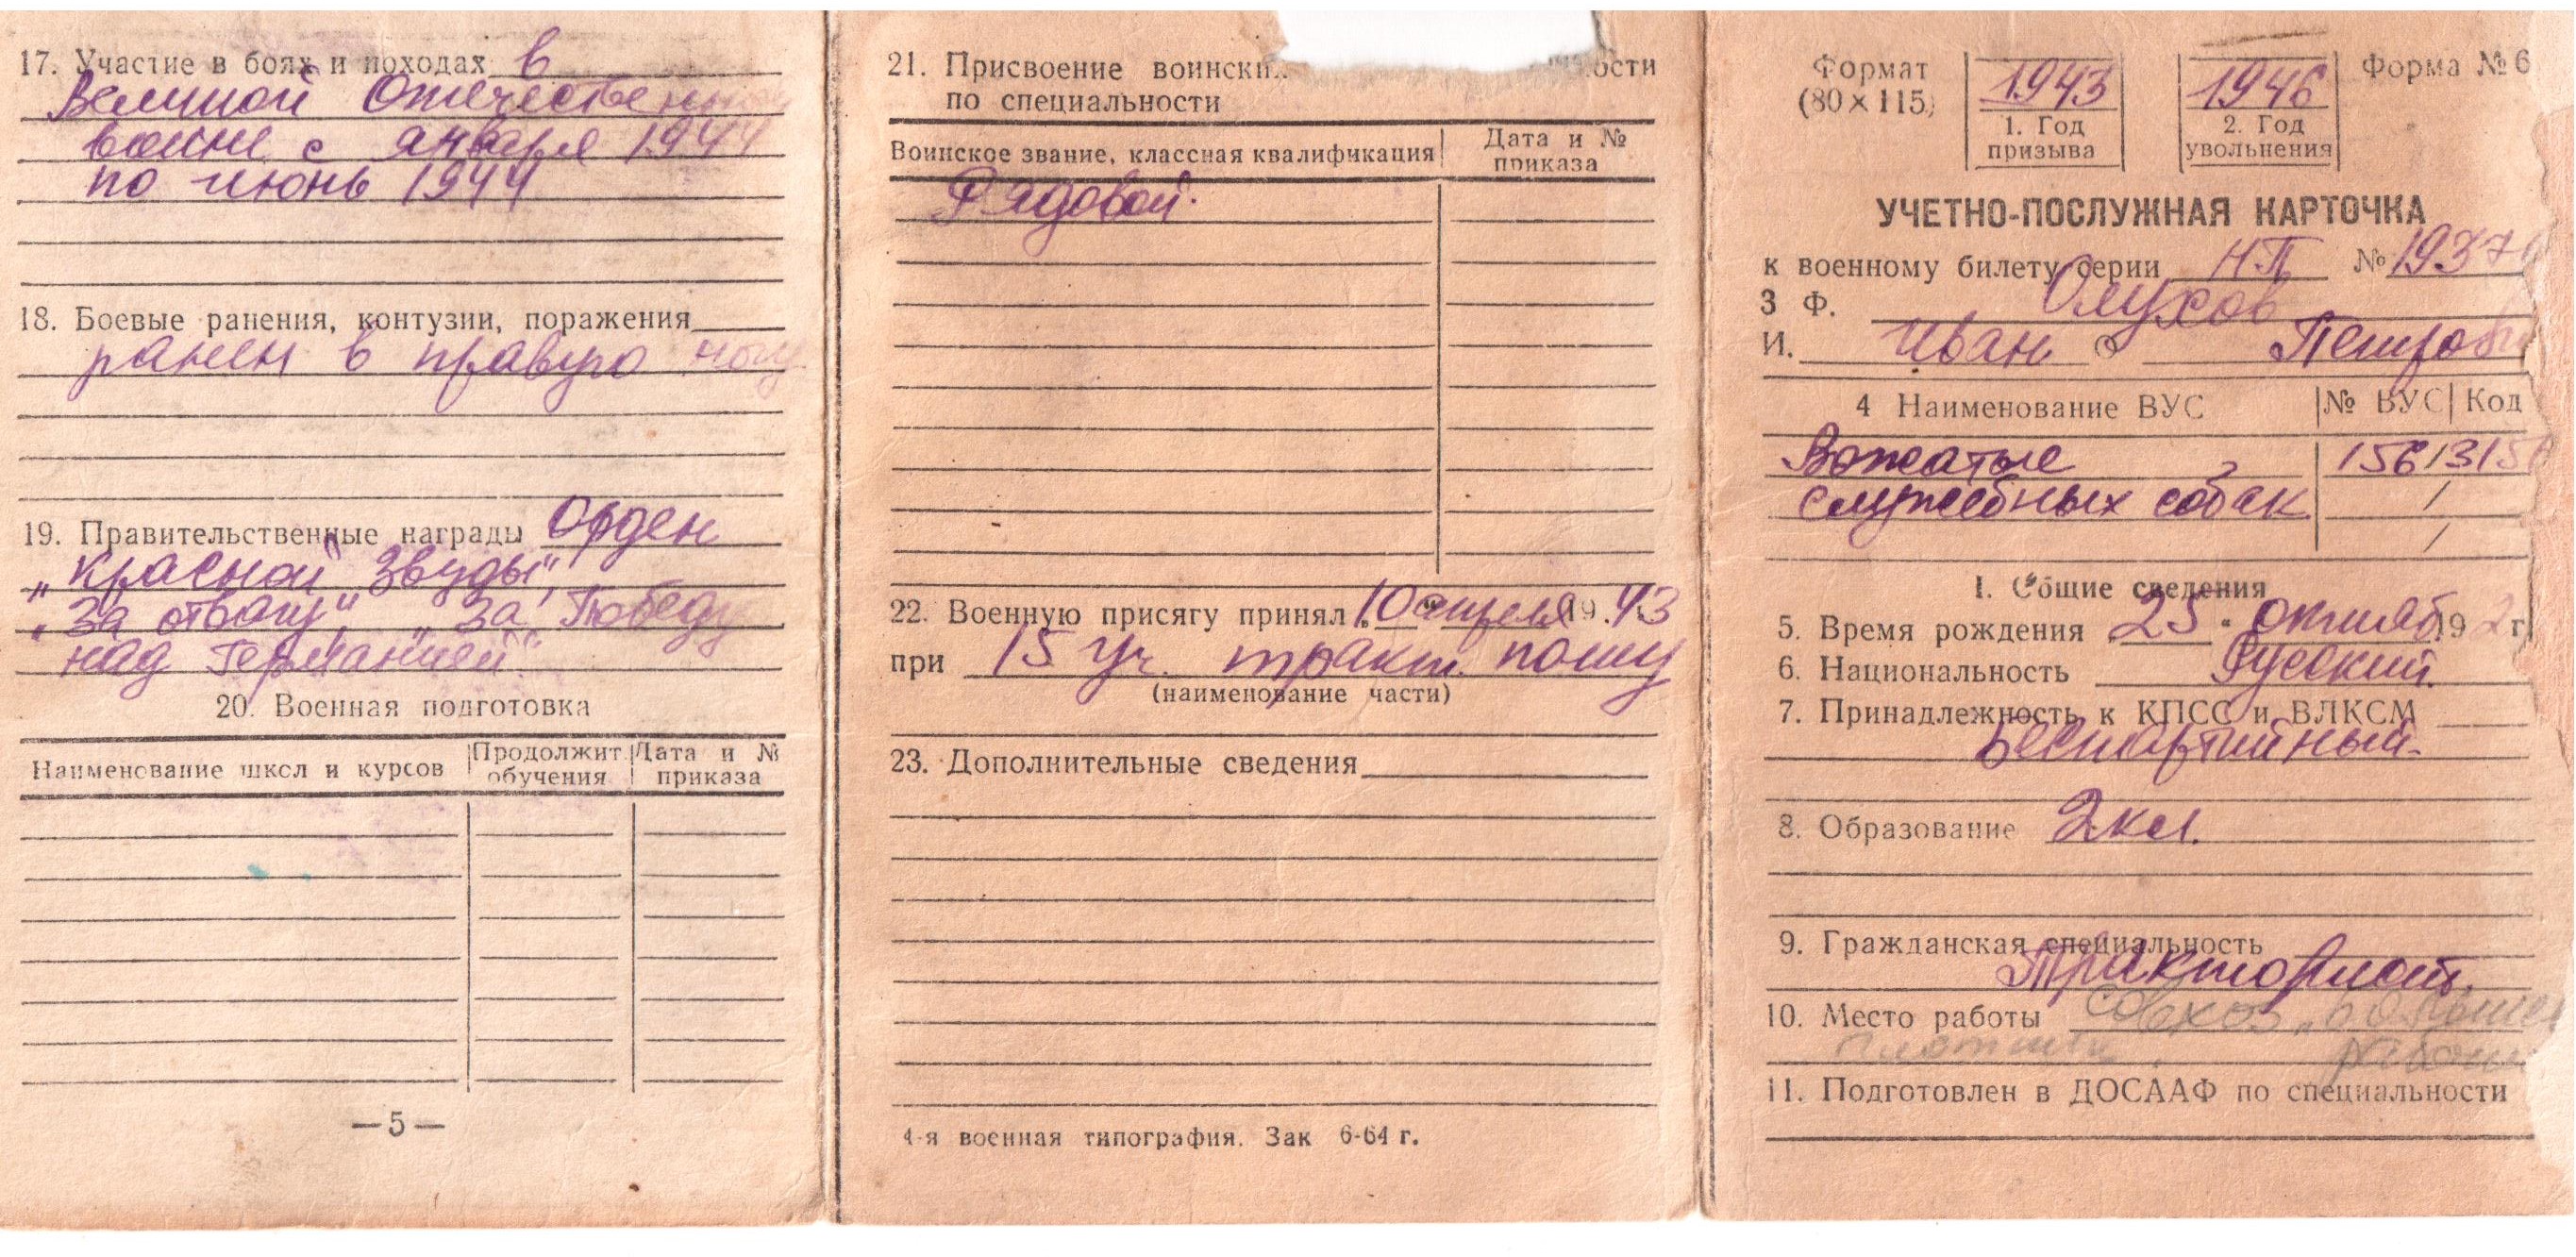 17. Участие в боях и походах в
Великой Отечественной
войне с января 1944
по июнь 1944
18. Боевые ранения, контузии, поражения
ранен в правую ногу
19. Правительственные награды Орден
„Красной Звезды",
„За отвагу", „За Победу
над Германией".
20. Военная подготовка
Наименование школ и курсов
Продолжит. обучения
Дата и № приказа
—5—
21. Присвоение воински ости
по специальности
Воинское звание, классная квалификация
Дата и № приказа
Рядовой.
22. Военную присягу принял 10 апреля 19.43
при 15 уч. тракт. полку
(наименование части)
23. Дополнительные сведения
4-я военная типография. Зак 6-64 г.
Формат
(80×115)
1943
1. Год
призыва
1946
2. Год
увольнения
Форма № 6
УЧЕТНО-ПОСЛУЖНАЯ КАРТОЧКА
к военному билету серии НП №
3 Ф. Олухов
И. Иван О Петрови
4 Наименование ВУС № ВУС Код
Вожатые
служебных собак
I. Общие сведения
5. Время рождения 25 октяб 192 г
6. Национальность Русский.
7. Принадлежность к КПСС и ВЛКСМ
Беспартийный.
8. Образование 2 кл.
9. Гражданская специальность
Тракторист.
10. Место работы совхоз
11. Подготовлен в ДОСААФ по специальности